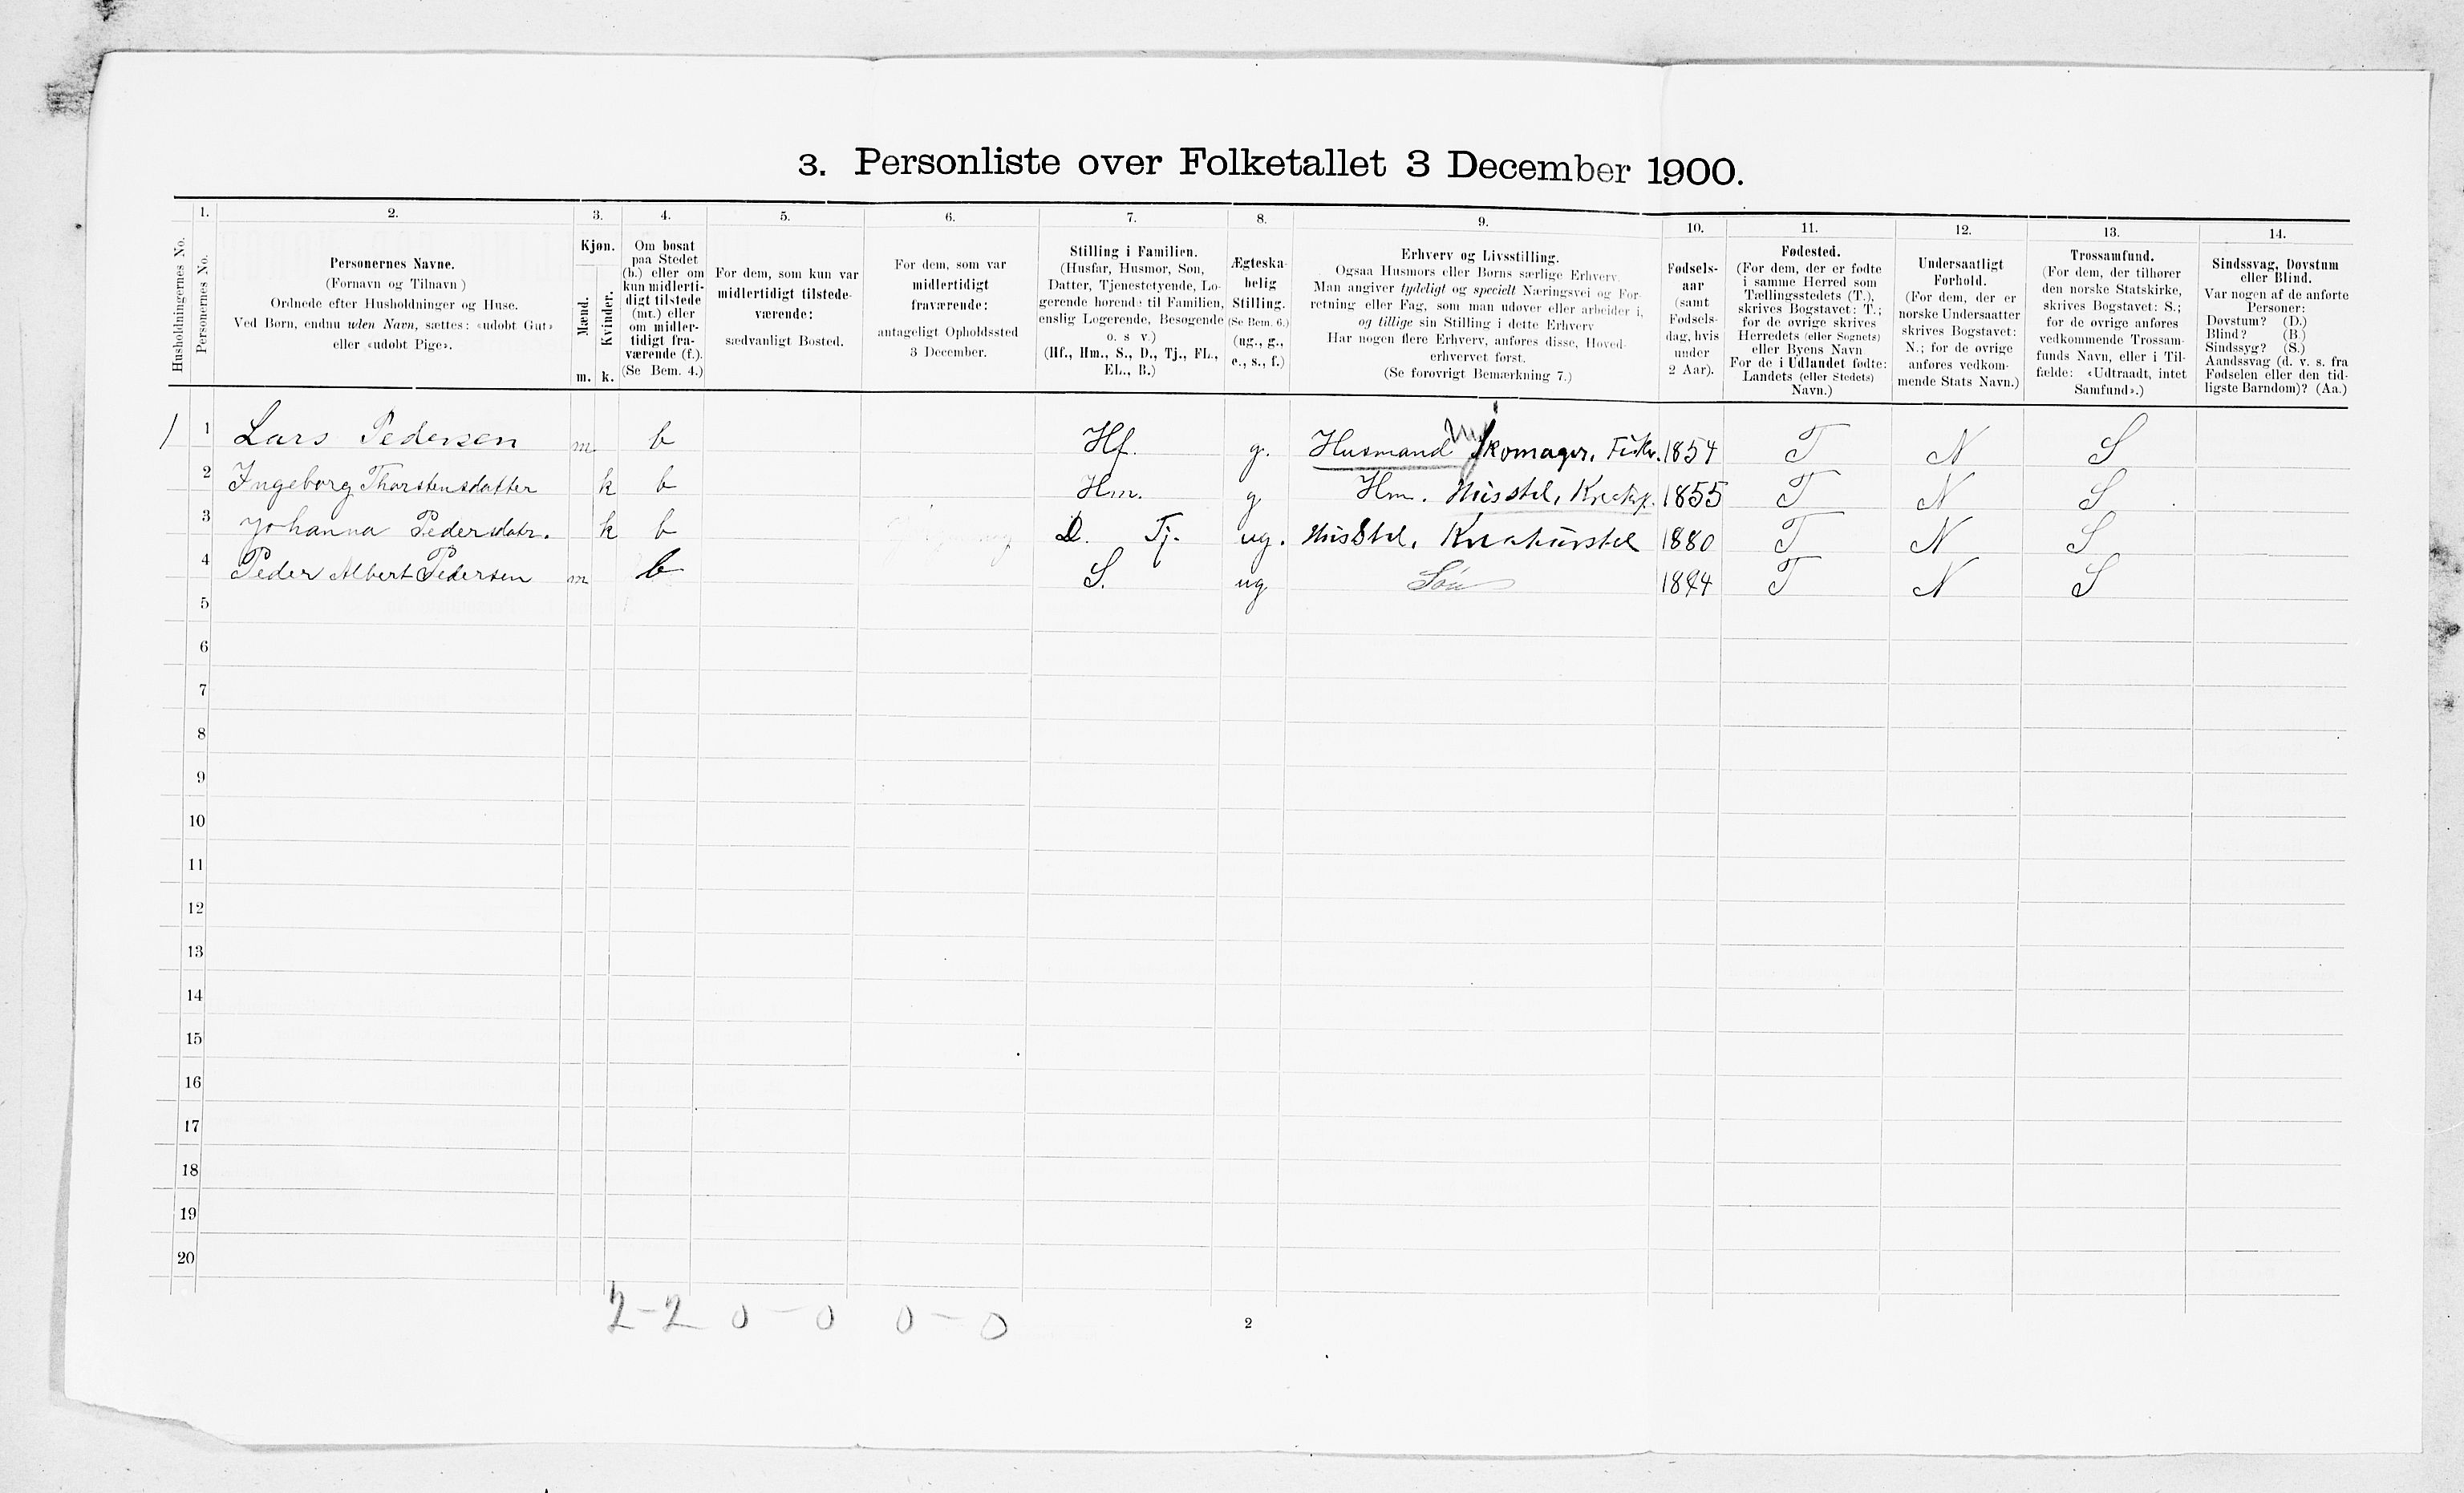 3. Personliste over Folketallet 3 December 1900.
Husholdningernes No.
1.
Personernes No.
2.
Personernes Navne.
(Fornavn og Tilnavn)
Ordnede efter Husholdninger og Huse.
Ved Børn, endnu uden Navn, sættes: «udobt Gut»
eller «udobt Pige».
3.
Kjøn.
Mænd.
Kvinder.
m. k.
4.
Om bosat
paa Stedet
(b.) eller om
kun midlerti-
digt tilstede
(mt.) eller
om midler-
tidigt fra-
værende (f.).
(Se Bem. 4.)
5.
For dem, som kun var
midlertidigt tilstede-
værende:
sædvanligt Bosted.
6.
For dem, som var
midlertidigt
fraværende:
antageligt Opholdssted
3 December.
7.
Stilling i Familien.
(Husfar, Husmor, Søn,
Datter, Tjenestetyende, Lo-
gerende hørende til Familien,
enslig Logerende, Besøgende
o. s v.)
(Hf., Hm., S., D., Tj., FL.,
EL., B.)
8.
Ægteska-
belig
Stilling.
(Se Bem. 6.)
(ug., g.,
e., s., f.)
9.
Erhverv og Livsstilling.
Ogsaa Husmors eller Børns særlige Erhverv.
Man angiver tydeligt og specielt Næringsvei og For-
retning eller Fag, som man udøver eller arbeider i,
og tillige sin Stilling i dette Erhverv
Har nogen flere Erhverv, anføres disse, Hoved-
erhvervet først.
(Se forøvrigt Bemærkning 7.)
10.
Fødsels-
aar
(samt
Fødsels-
dag, hvis
under
2 Aar).
11.
Fødested.
(For dem, der er fødte
i samme Herred som
Tællingsstedets (T.),
skrives Bogstavet: T.;
for de øvrige skrives
Herredets (eller Sognets)
eller Byens Navn
For de i Udlandet fødte:
Landets (eller Stedets)
Navn.)
12.
Undersaatligt
Forhold.
(For dem, der er
norske Undersaatter
skrives Bogstavet:
N.; for de øvrige
anføres vedkom-
mende Stats Navn.)
13.
Trossamfund.
(For dem, der tilhører
den norske Statskirke,
skrives Bogstavet: S.;
for de øvrige anføres
vedkommende Trossam-
funds Navn, eller i Til-
fælde: «Udtraadt, intet
Samfund».)
14.
Sindssvag, Døvstum
eller Blind.
Var nogen af de anførte
Personer:
Døvstum? (D.)
Blind? (B.)
Sindssyg? (S.)
Aandssvag (d. v. s. fra
Fødselen eller den tid-
ligste Barndom)? (Aa.)
1 1 Lars Pedersen m. b Hf. g. Husmand Skomager. 1854 T N S
2 Ingeborg Thorstensdatter k b Hm. g Hm. Husstel, 1855 T N S
3 Johanna Pedersdatr. k b D. Tj. ug. Husstel, Kreaturstel 1880 T N S
4 Peder Albert Pedersen m b S. ug Søn T N S
5
6
7
8
9
10
11
12
13
14
15
16
17
18
19
20
2-2 0-0 0-0
2